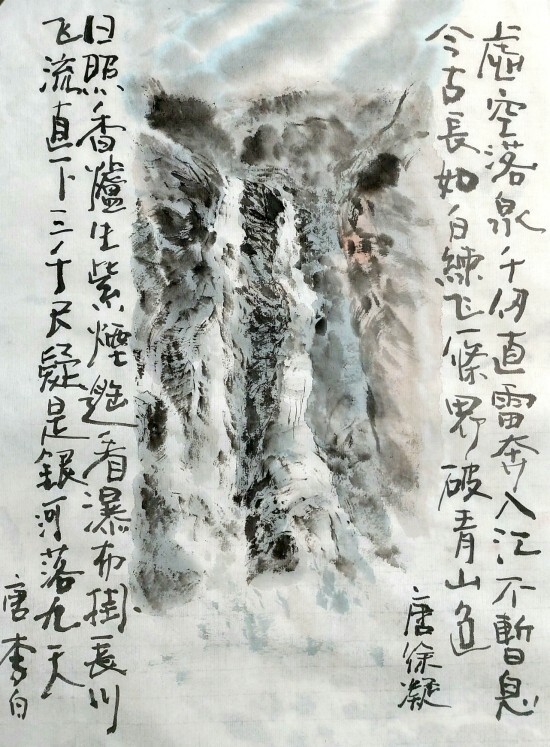 虚空落泉千仞直雷奔入江不暫息
今古長如白練飞一條界破青山色
唐徐凝
日照香爐生紫煙遙看瀑布掛長川
飞流直下三千尺疑是銀河落九天
唐李白